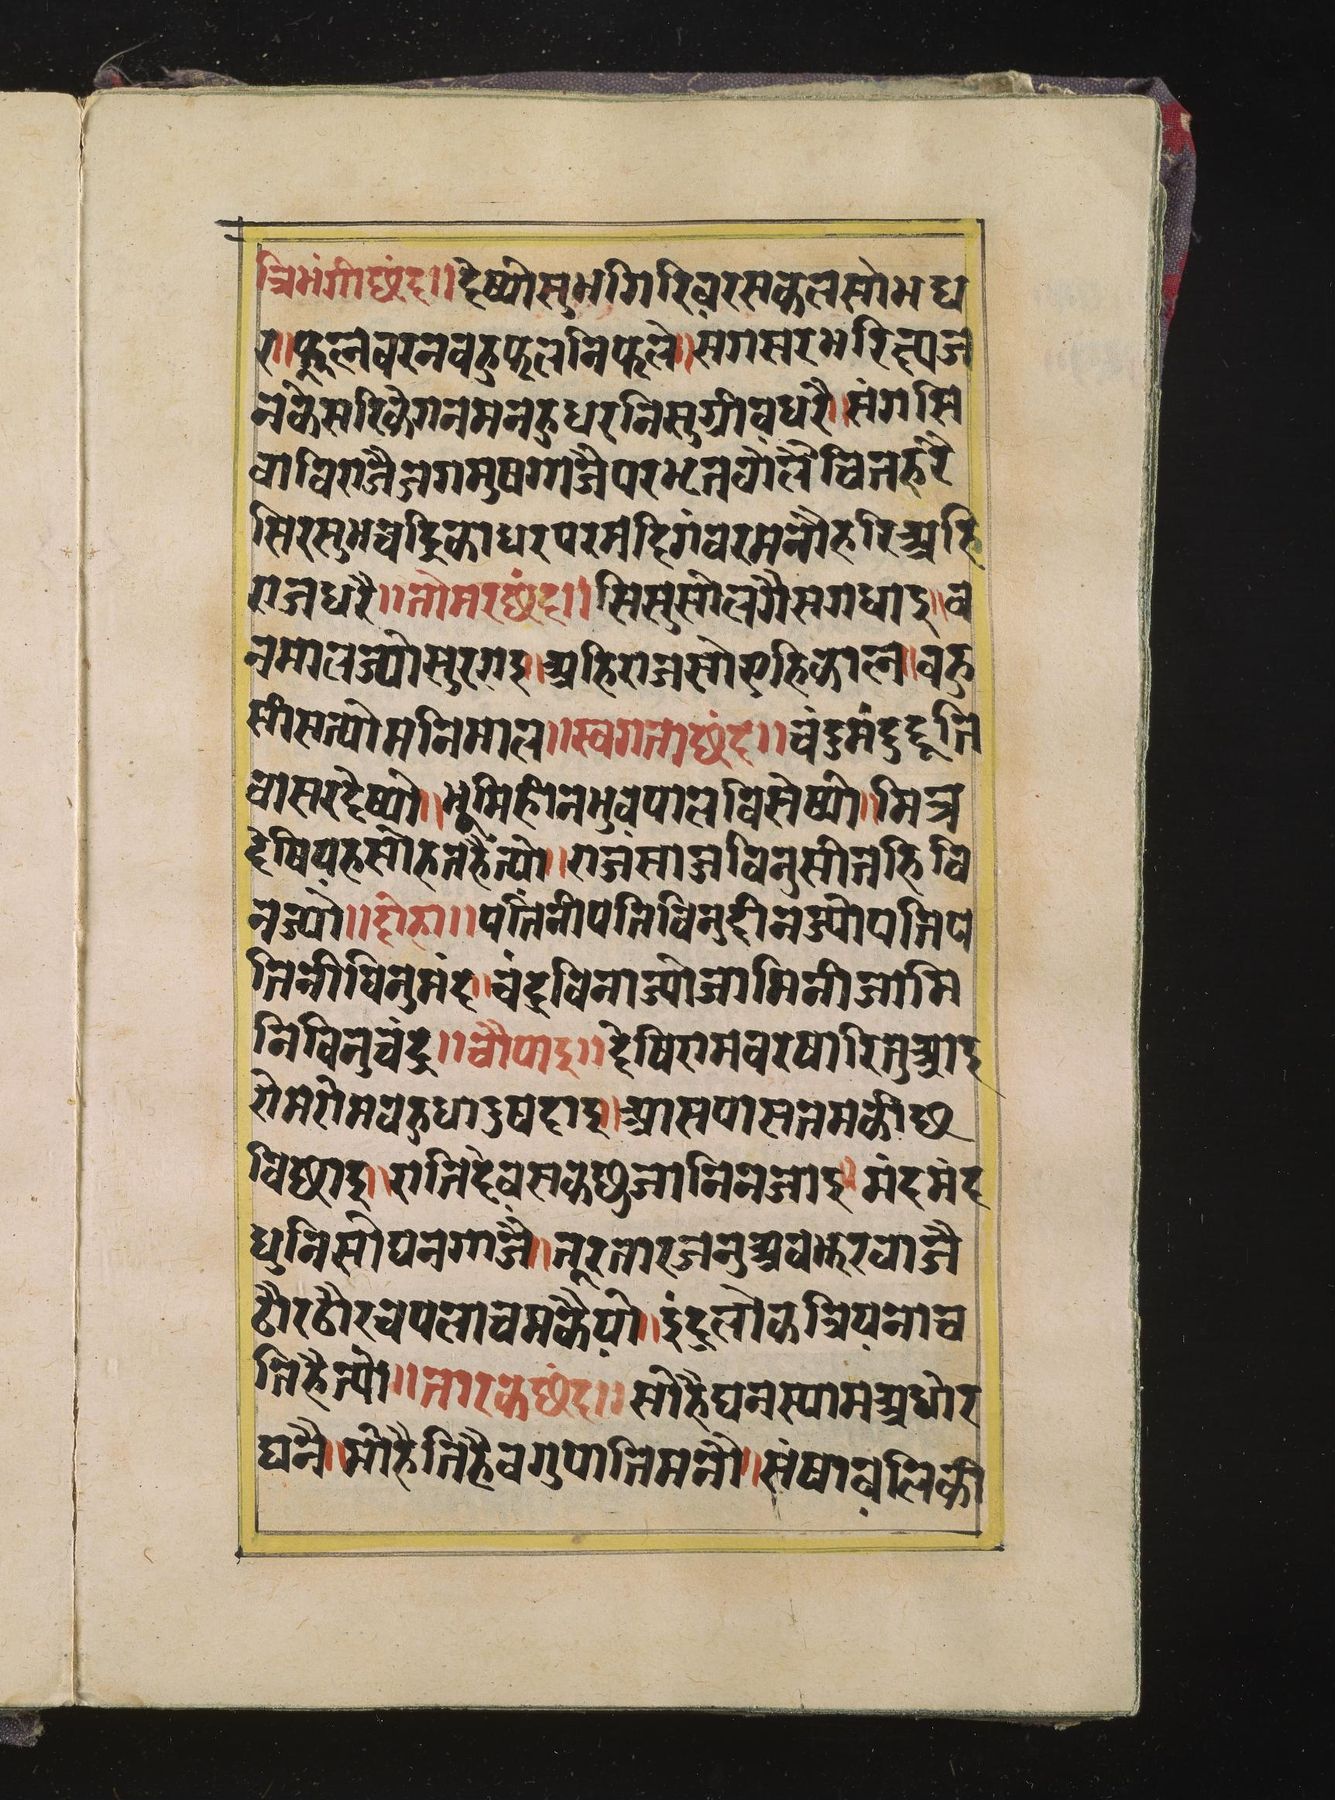 त्रिभंगीछंद॥देष्योसुभगिरिवरसकलसोभध
र॥फूलनवरनवहुफलनिफले॥सगसरभरित्पज
नकेसरिकेगनमनहुधरनिसुग्रीवधरै॥संगसि
वाविराजैजगमुषगाजैपरभृतवोलैचितहरै
सिरसुभचद्रिकाधरपरमदिगंवरमनौहरिअहि
राजधरै॥तोमरछंद॥सिसुसोलगैसगधाइ॥व
नमालज्योसुरगइ॥अहिराजसोएहिकाल॥वहु
सीसत्योमनिमाल॥स्वगताछंद॥चंदुमंदुदूति
वासरदेष्यो॥भूमिहीनभुवपालविसेष्यो॥मित्र
देषियहसोहतहैत्यो॥राजसाजविनुसीतहिवि
नज्यो॥दोहा॥पतिनीपतिविनुदीनज्योपतिप
तिनीविनुमंद॥चंदुविनाज्योजामिनीजामि
निविनुचंदु॥चौपाइ॥देषिरामवरषारितुआइ
रोमरोमवहुधादुषदाइ॥आसपासतमकीछ
विछाइ॥रातिदैवसकछुजानिनजाइ॥मंदमंद
धुनिसोघनगाजै॥तूरतारजनुअवझरवाजै
ठौरठौरचपलाचमकैयो॥इंदुलोकत्रियनाच
तिहैत्यो॥तारकछंद॥सोहैघनस्यामअघोर
घनै॥मोहैतिहैवगुपातिमनौ॥संषावलिकी